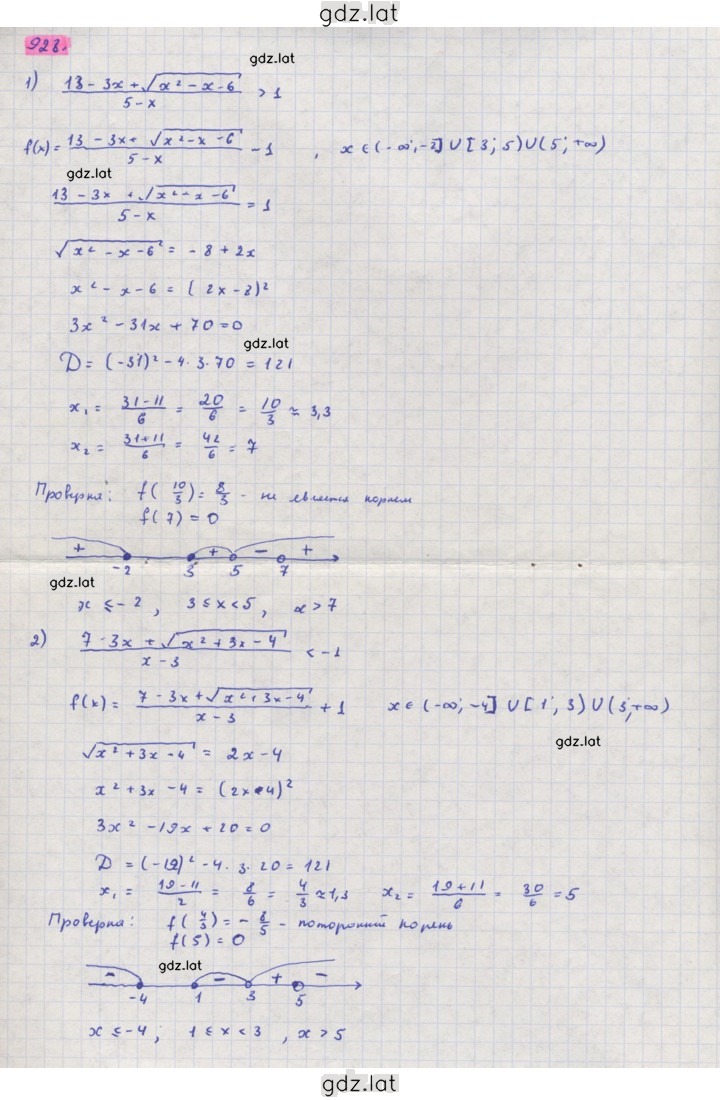 gdz.lat
928.
gdz.lat
1) (13 - 3x + √(x² - x - 6))/(5 - x) > 1
f(x) = (13 - 3x + √(x² - x - 6))/(5 - x) - 1 , x ∈ (-∞; -2] ∪ [3; 5) ∪ (5; +∞)
gdz.lat
(13 - 3x + √(x² - x - 6))/(5 - x) = 1
√(x² - x - 6) = - 8 + 2x
x² - x - 6 = (2x - 8)²
3x² - 31x + 70 = 0
gdz.lat
D = (-31)² - 4 · 3 · 70 = 121
x₁ = (31 - 11)/6 = 20/6 = 10/3 ≈ 3,3
x₂ = (31 + 11)/6 = 42/6 = 7
Проверка: f(10/3) = 8/3 - не является корнем
f(7) = 0
+ + - +
-2 3 5 7
gdz.lat
x ≤ -2 , 3 ≤ x < 5 , x > 7
2) (7 - 3x + √(x² + 3x - 4))/(x - 3) < -1
f(x) = (7 - 3x + √(x² + 3x - 4))/(x - 3) + 1 x ∈ (-∞; -4] ∪ [1; 3) ∪ (3; +∞)
gdz.lat
√(x² + 3x - 4) = 2x - 4
x² + 3x - 4 = (2x - 4)²
3x² - 19x + 20 = 0
D = (-19)² - 4 · 3 · 20 = 121
x₁ = (19 - 11)/2 = 8/6 = 4/3 ≈ 1,3 x₂ = (19 + 11)/6 = 30/6 = 5
Проверка: f(4/3) = - 8/5 - посторонний корень
f(5) = 0
gdz.lat
- - + -
-4 1 3 5
x ≤ -4 ; 1 ≤ x < 3 , x > 5
gdz.lat